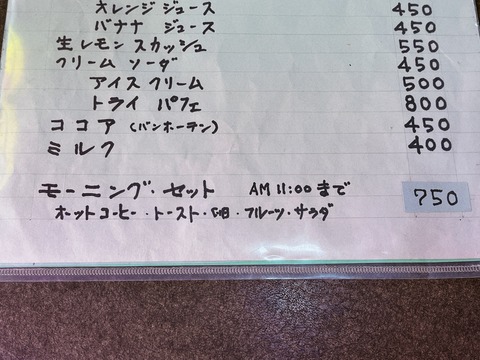 オレンジジュース 450
バナナ ジュース 450
生レモン スカッシュ 550
クリーム ソーダ 450
アイスクリーム 500
トライ パフェ 800
ココア (バンホーテン) 450
ミルク 400
モーニング・セット AM 11:00まで 750
ホットコーヒー・トースト・卵・フルーツ・サラダ